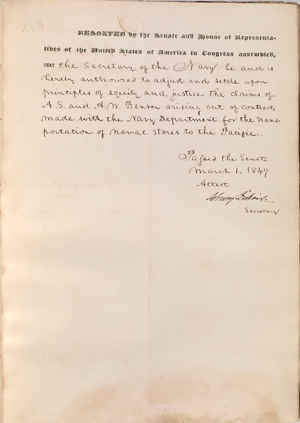 RESOLVED by the Senate and House of Representa-
tives of the United States of America in Congress assembled,
THAT the Secretary of the Navy be and is
hereby authorized to adjust and settle upon
principles of equity and justice the claims of
A.G. and A.W. Benson arising out of contracts
made with the Navy Department for the trans-
portation of naval stores to the Pacific.
Passed the Senate
March 1, 1849
Attest
Secretary